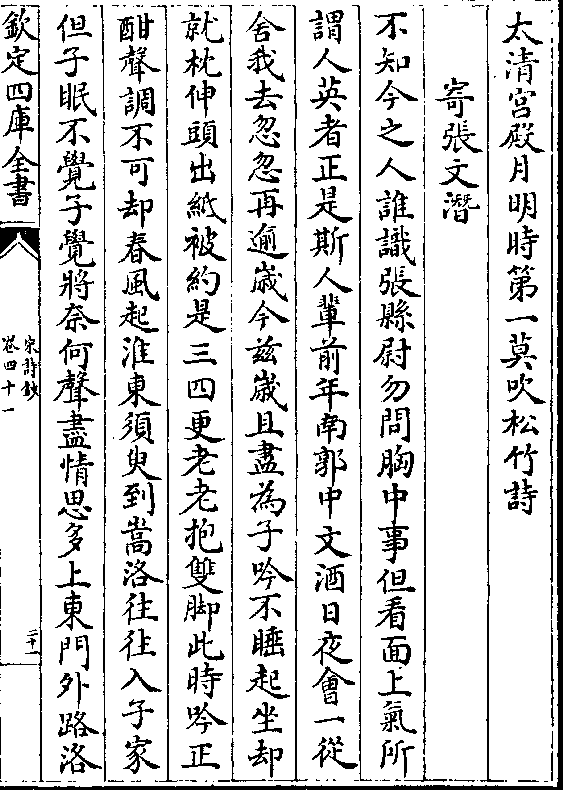 太清宫殿月明時第一莫吹松竹詩
寄張文潛
不知今之人誰識張縣尉勿問胸中事但看面上氣所
謂人英者正是斯人輩前年南郭中文酒日夜會一從
舍我去忽忽再逾歲今兹歲且盡為子吟不睡起坐却
就枕伸頭出紙被約是三四更老老抱雙脚此時吟正
酣聲調不可却春風起淮東須臾到嵩洛往往入子家
但子眠不覺子覺將奈何聲盡情思多上東門外路洛
欽定四庫全書
宋詩鈔
卷四十一
二十一